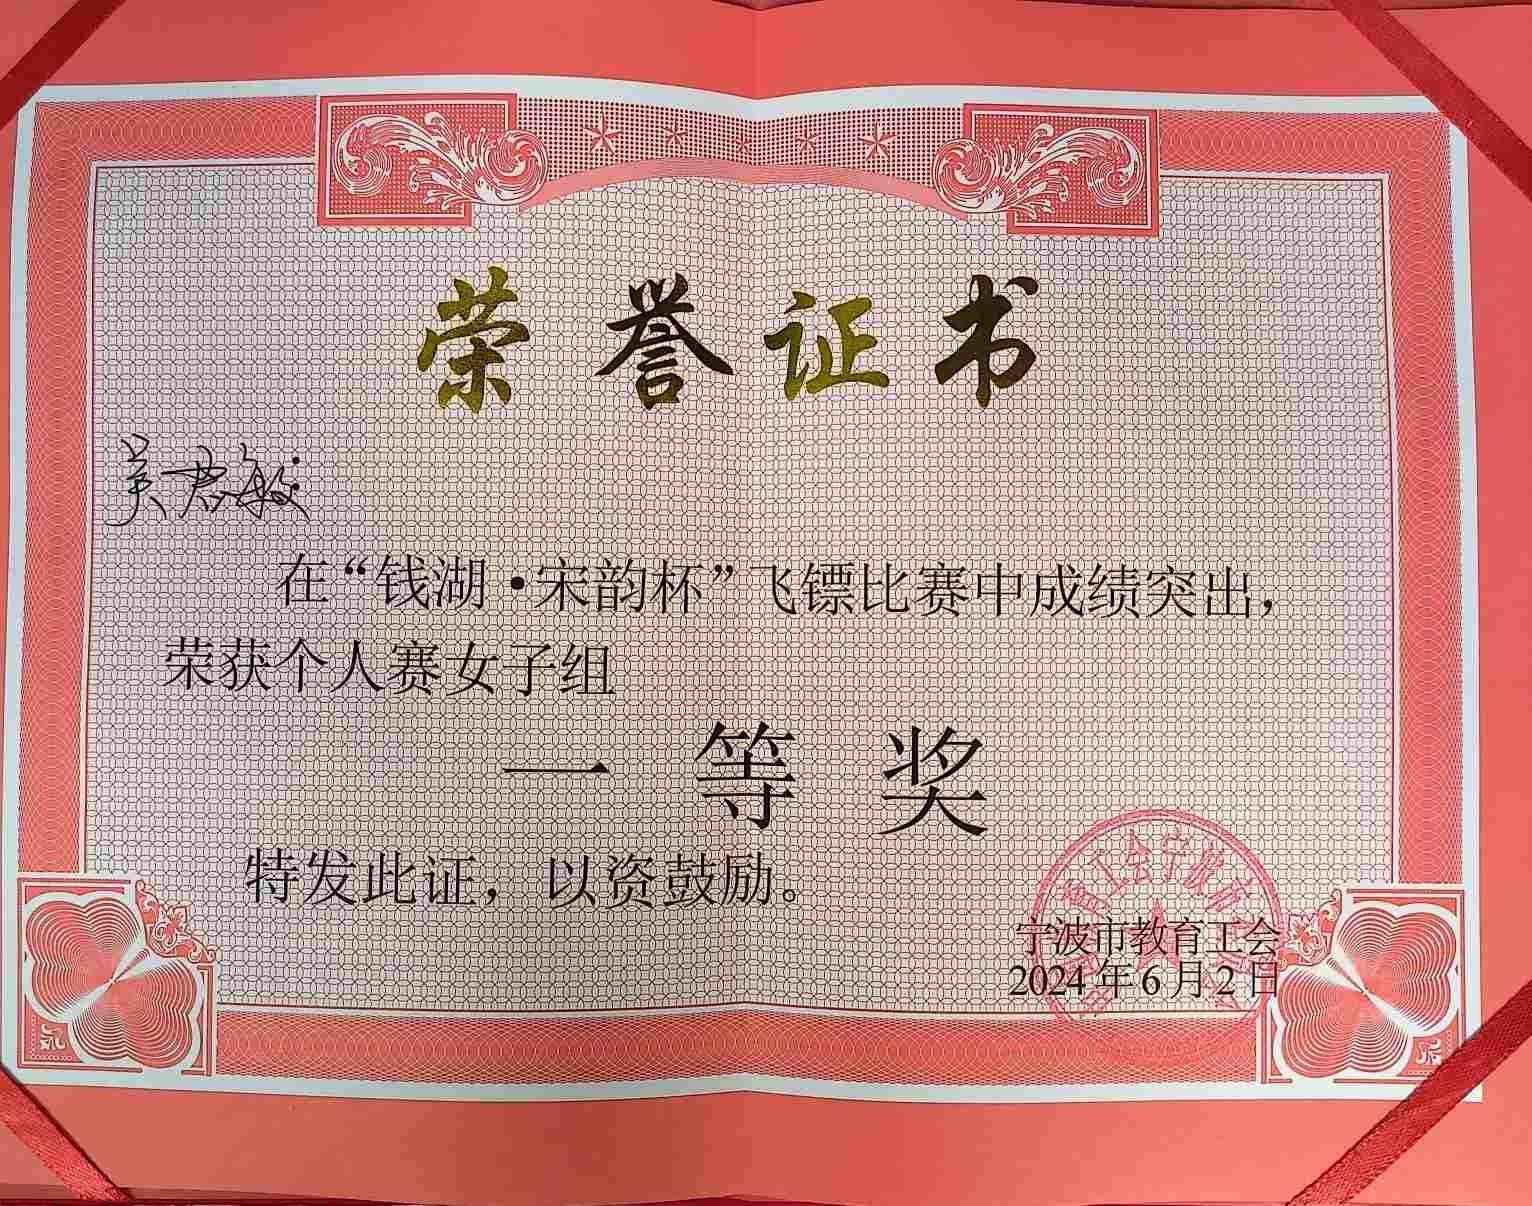 荣誉证书
吴君敏
在“钱湖·宋韵杯”飞镖比赛中成绩突出，
荣获个人赛女子组
一等奖
特发此证，以资鼓励。
宁波市教育工会
2024年6月2日
工会宁波市